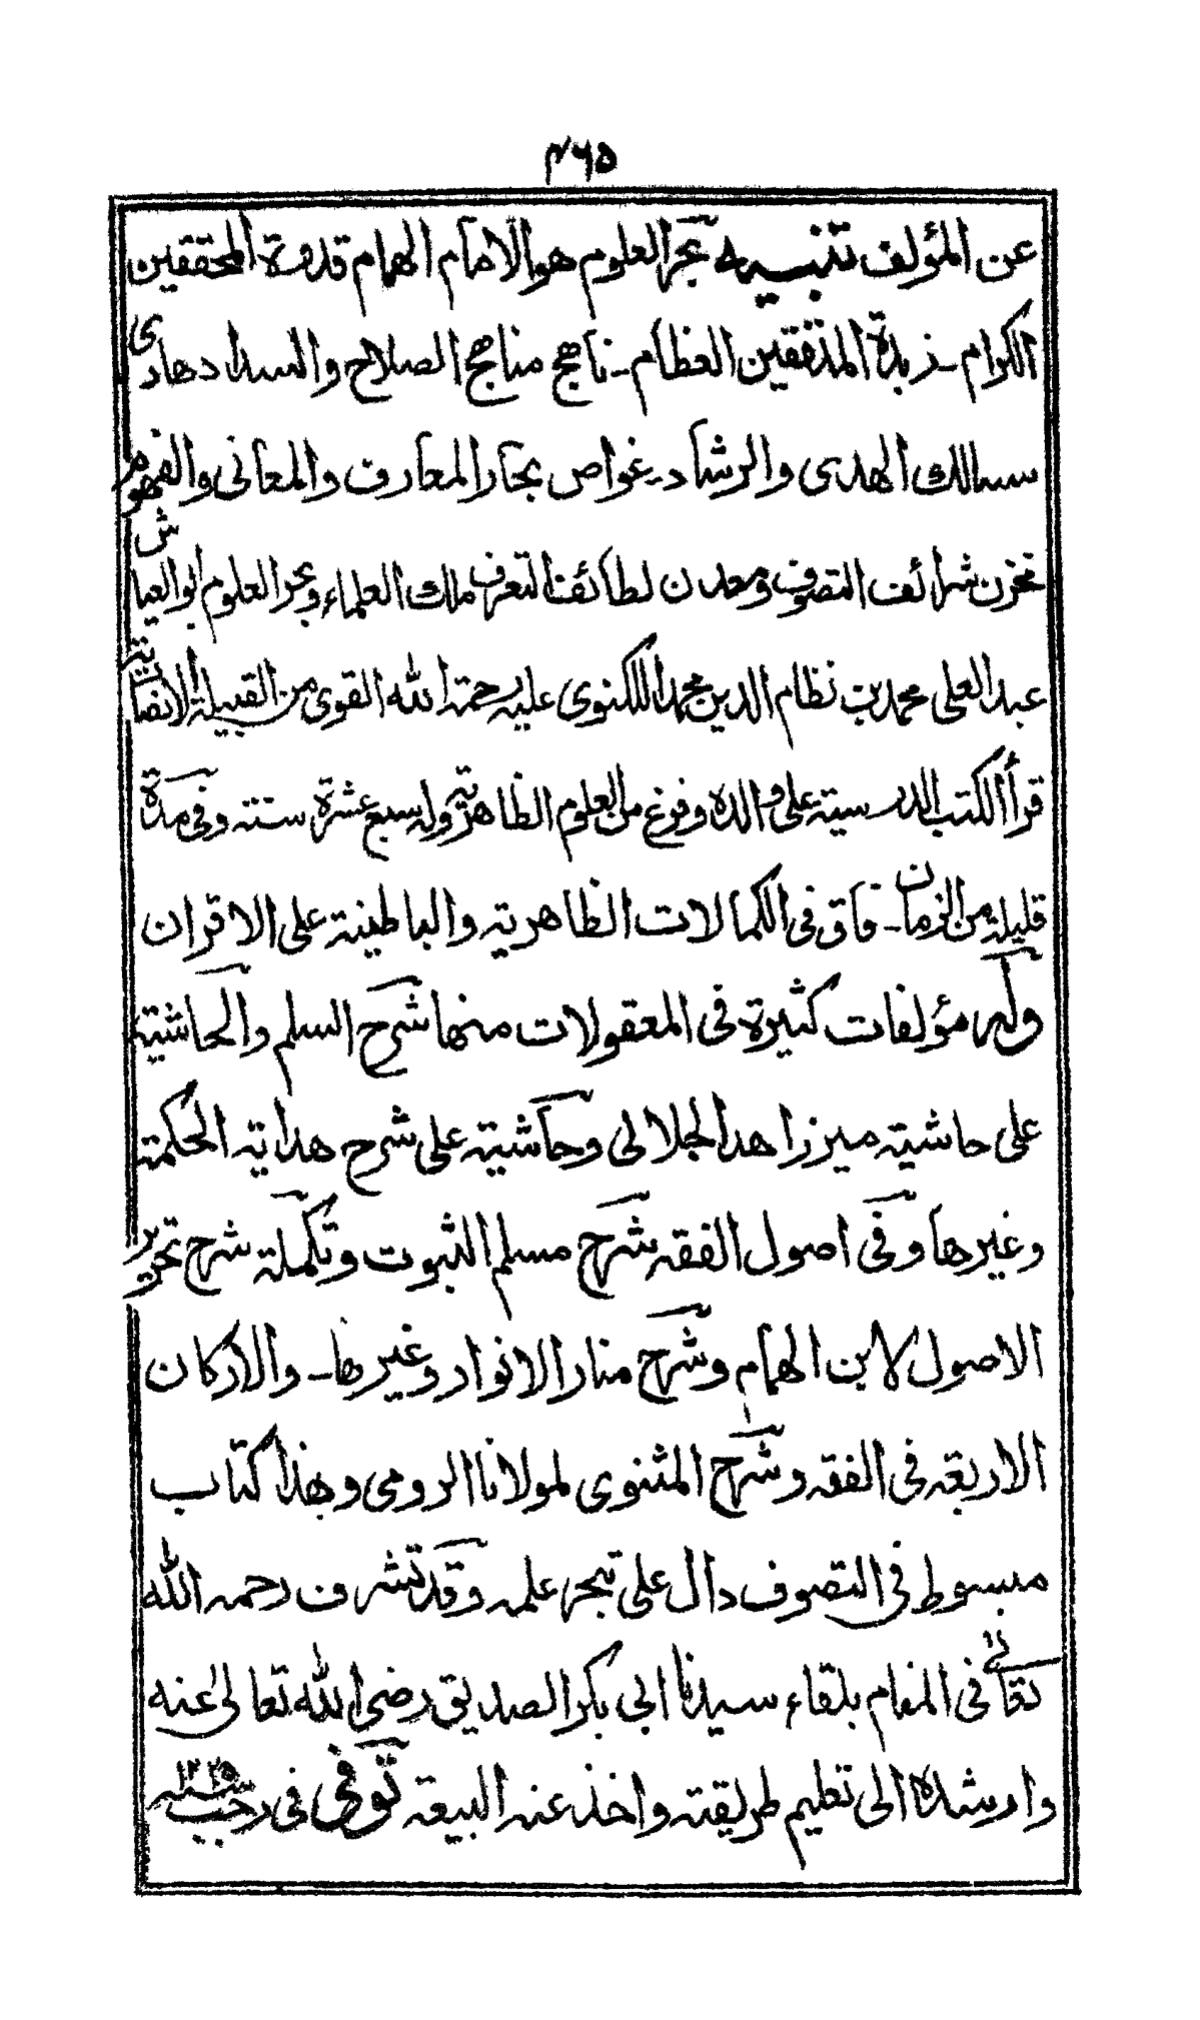 ۴۶۵
عن المؤلف تنبيه بحر العلوم هو الامام الهمام قدوة المحققين
الكرام ـ زبدة المدققين العظام ـ ناهج مناهج الصلاح والسداد هادى
سالك الهدى والرشاد ـ غواص بحار المعارف والمعانى والفهوم
مخزن شرائف التصوف ومعدن لطائف التعرف ملك العلماء وبحر العلوم ابو العياش
عبد العلى محمد بن نظام الدين محمد اللكنوى عليه رحمة الله القوى من القبيلة الانصارية
قرأ الكتب الدرسية على والده وفرغ من العلوم الظاهرية وله سبع عشرة سنة وفى مدة
قليلة من الزمان ـ فاق فى الكمالات الظاهرية والباطنية على الاقران
وله مؤلفات كثيرة فى المعقولات منها شرح السلم والحاشية
على حاشية ميرزاهد الجلالى وحاشية على شرح هداية الحكمة
وغيرها وفى اصول الفقه شرح مسلم الثبوت وتكملة شرح تحرير
الاصول لابن الهمام وشرح منار الانوار وغيرها ـ والاركان
الاربعة فى الفقه وشرح المثنوى لمولانا الرومى وهذا كتاب
مبسوط فى التصوف دال على تبحر علمه وقد تشرف رحمه الله
تعالى فى المنام بلقاء سيدنا ابى بكر الصديق رضى الله تعالى عنه
وارشاده الى تعليم طريقته واخذ عنه البيعة توفى فى رجب سنه ۱۲۲۵